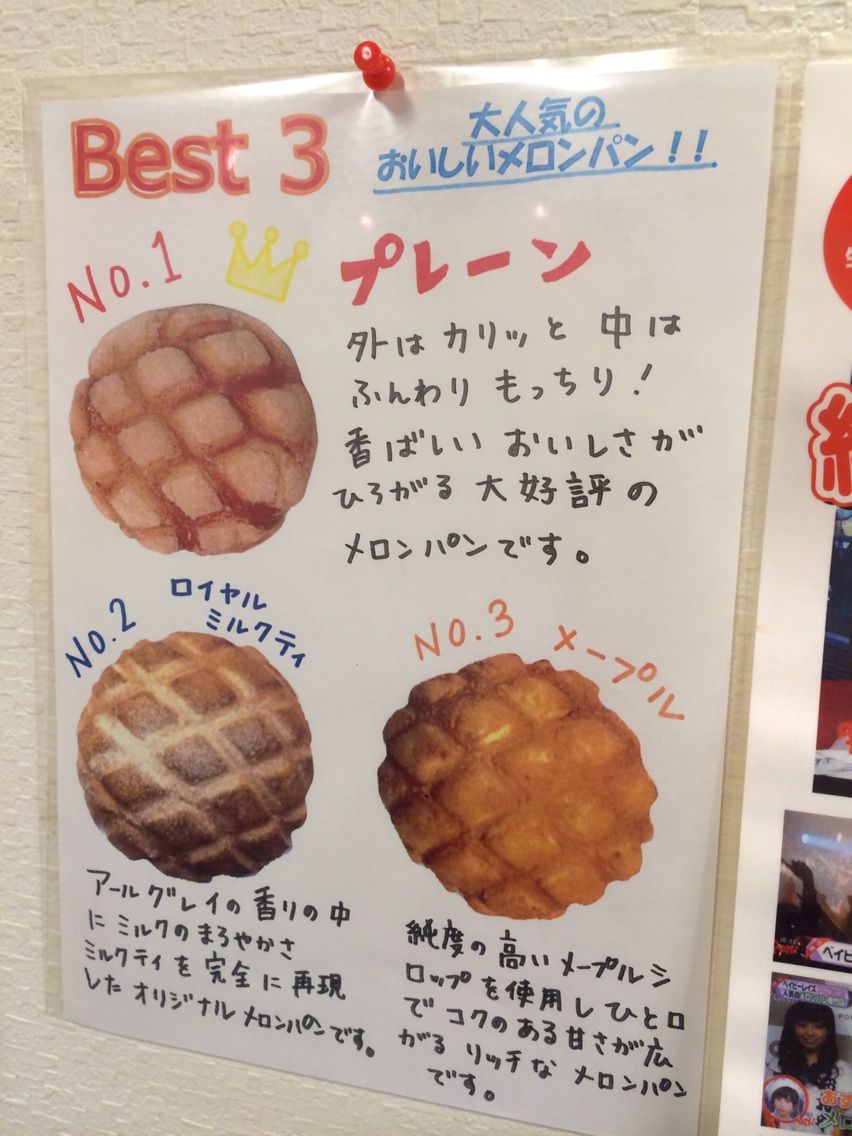 Best 3
大人気の
おいしいメロンパン!!
No.1
プレーン
外はカリッと 中は
ふんわり もっちり!
香ばしい おいしさが
ひろがる 大好評の
メロンパンです。
No.2
ロイヤル
ミルクティ
アールグレイの香りの中
にミルクのまろやかさ
ミルクティを完全に再現
したオリジナルメロンパンです。
No.3
メープル
純度の高いメープルシ
ロップを使用しひと口
でコクのある甘さが広
がるリッチなメロンパン
です。
ベイビ
ベイビーレイズ